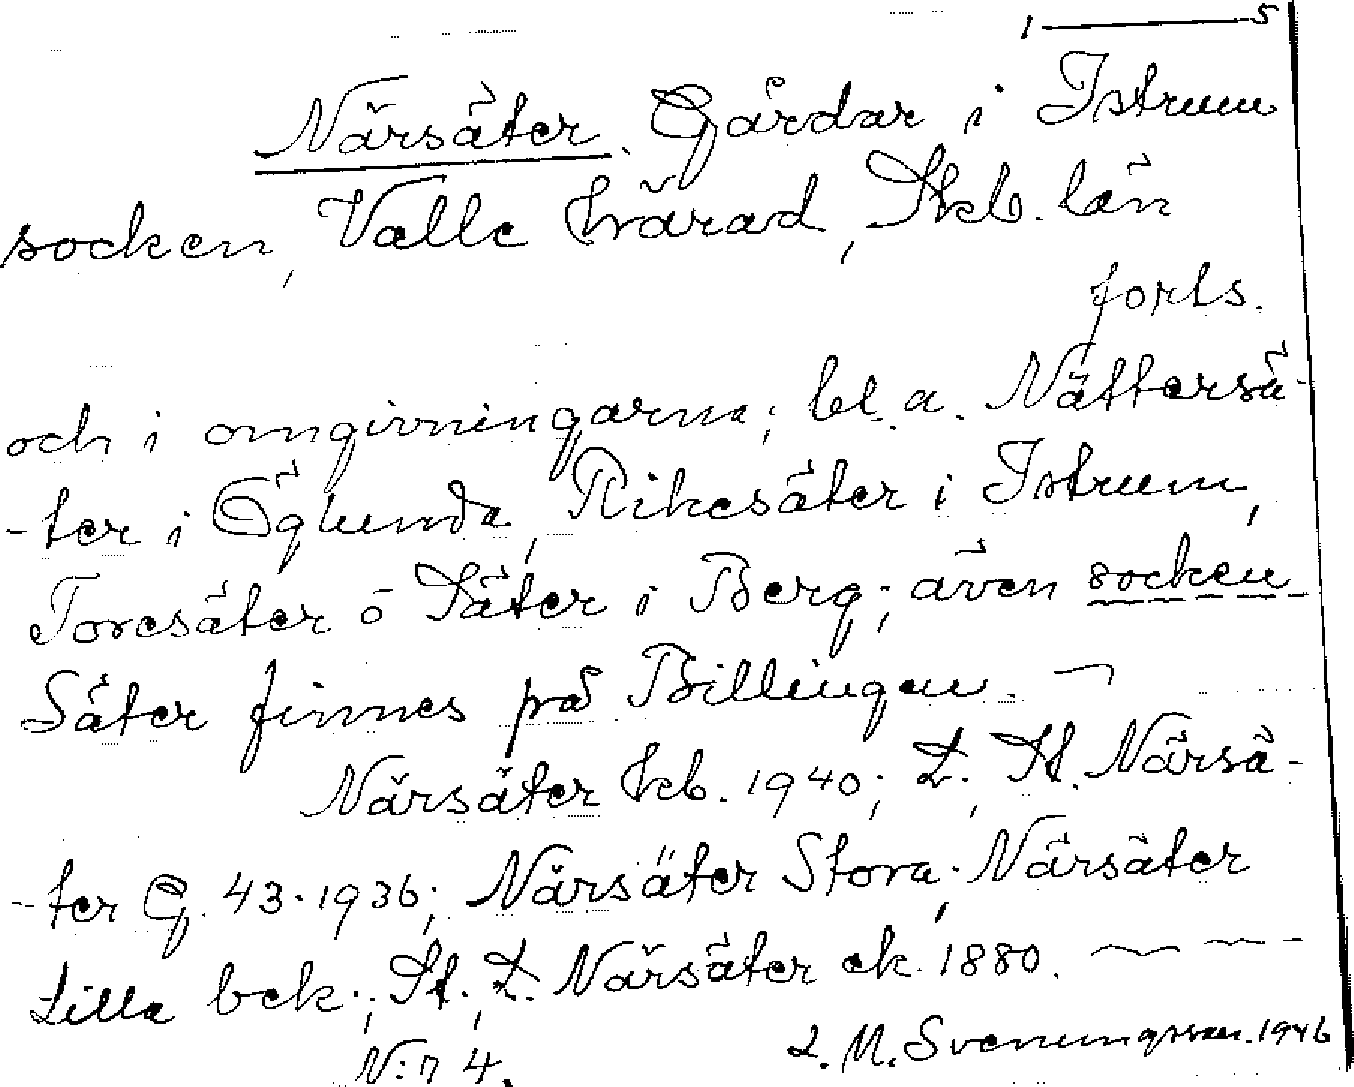 1 — 5
Närsäter. Gårdar i Istrum
socken, Valle härad, Skb. län
forts.
och i omgivningarna; bl.a. Nättersä-
-ter i Öglunda, Rikesäter i Istrum,
Toresäter o Säter i Berg; även socken
Säter finnes på Billingen. ¬
Närsäter hcb. 1940; L. St. Närsä-
-ter G. 43. 1936; Närsäter Stora; Närsäter
Lilla bek.; St. L. Närsäter ek. 1880.
N:o 4. L. M. Svenungsson. 1946